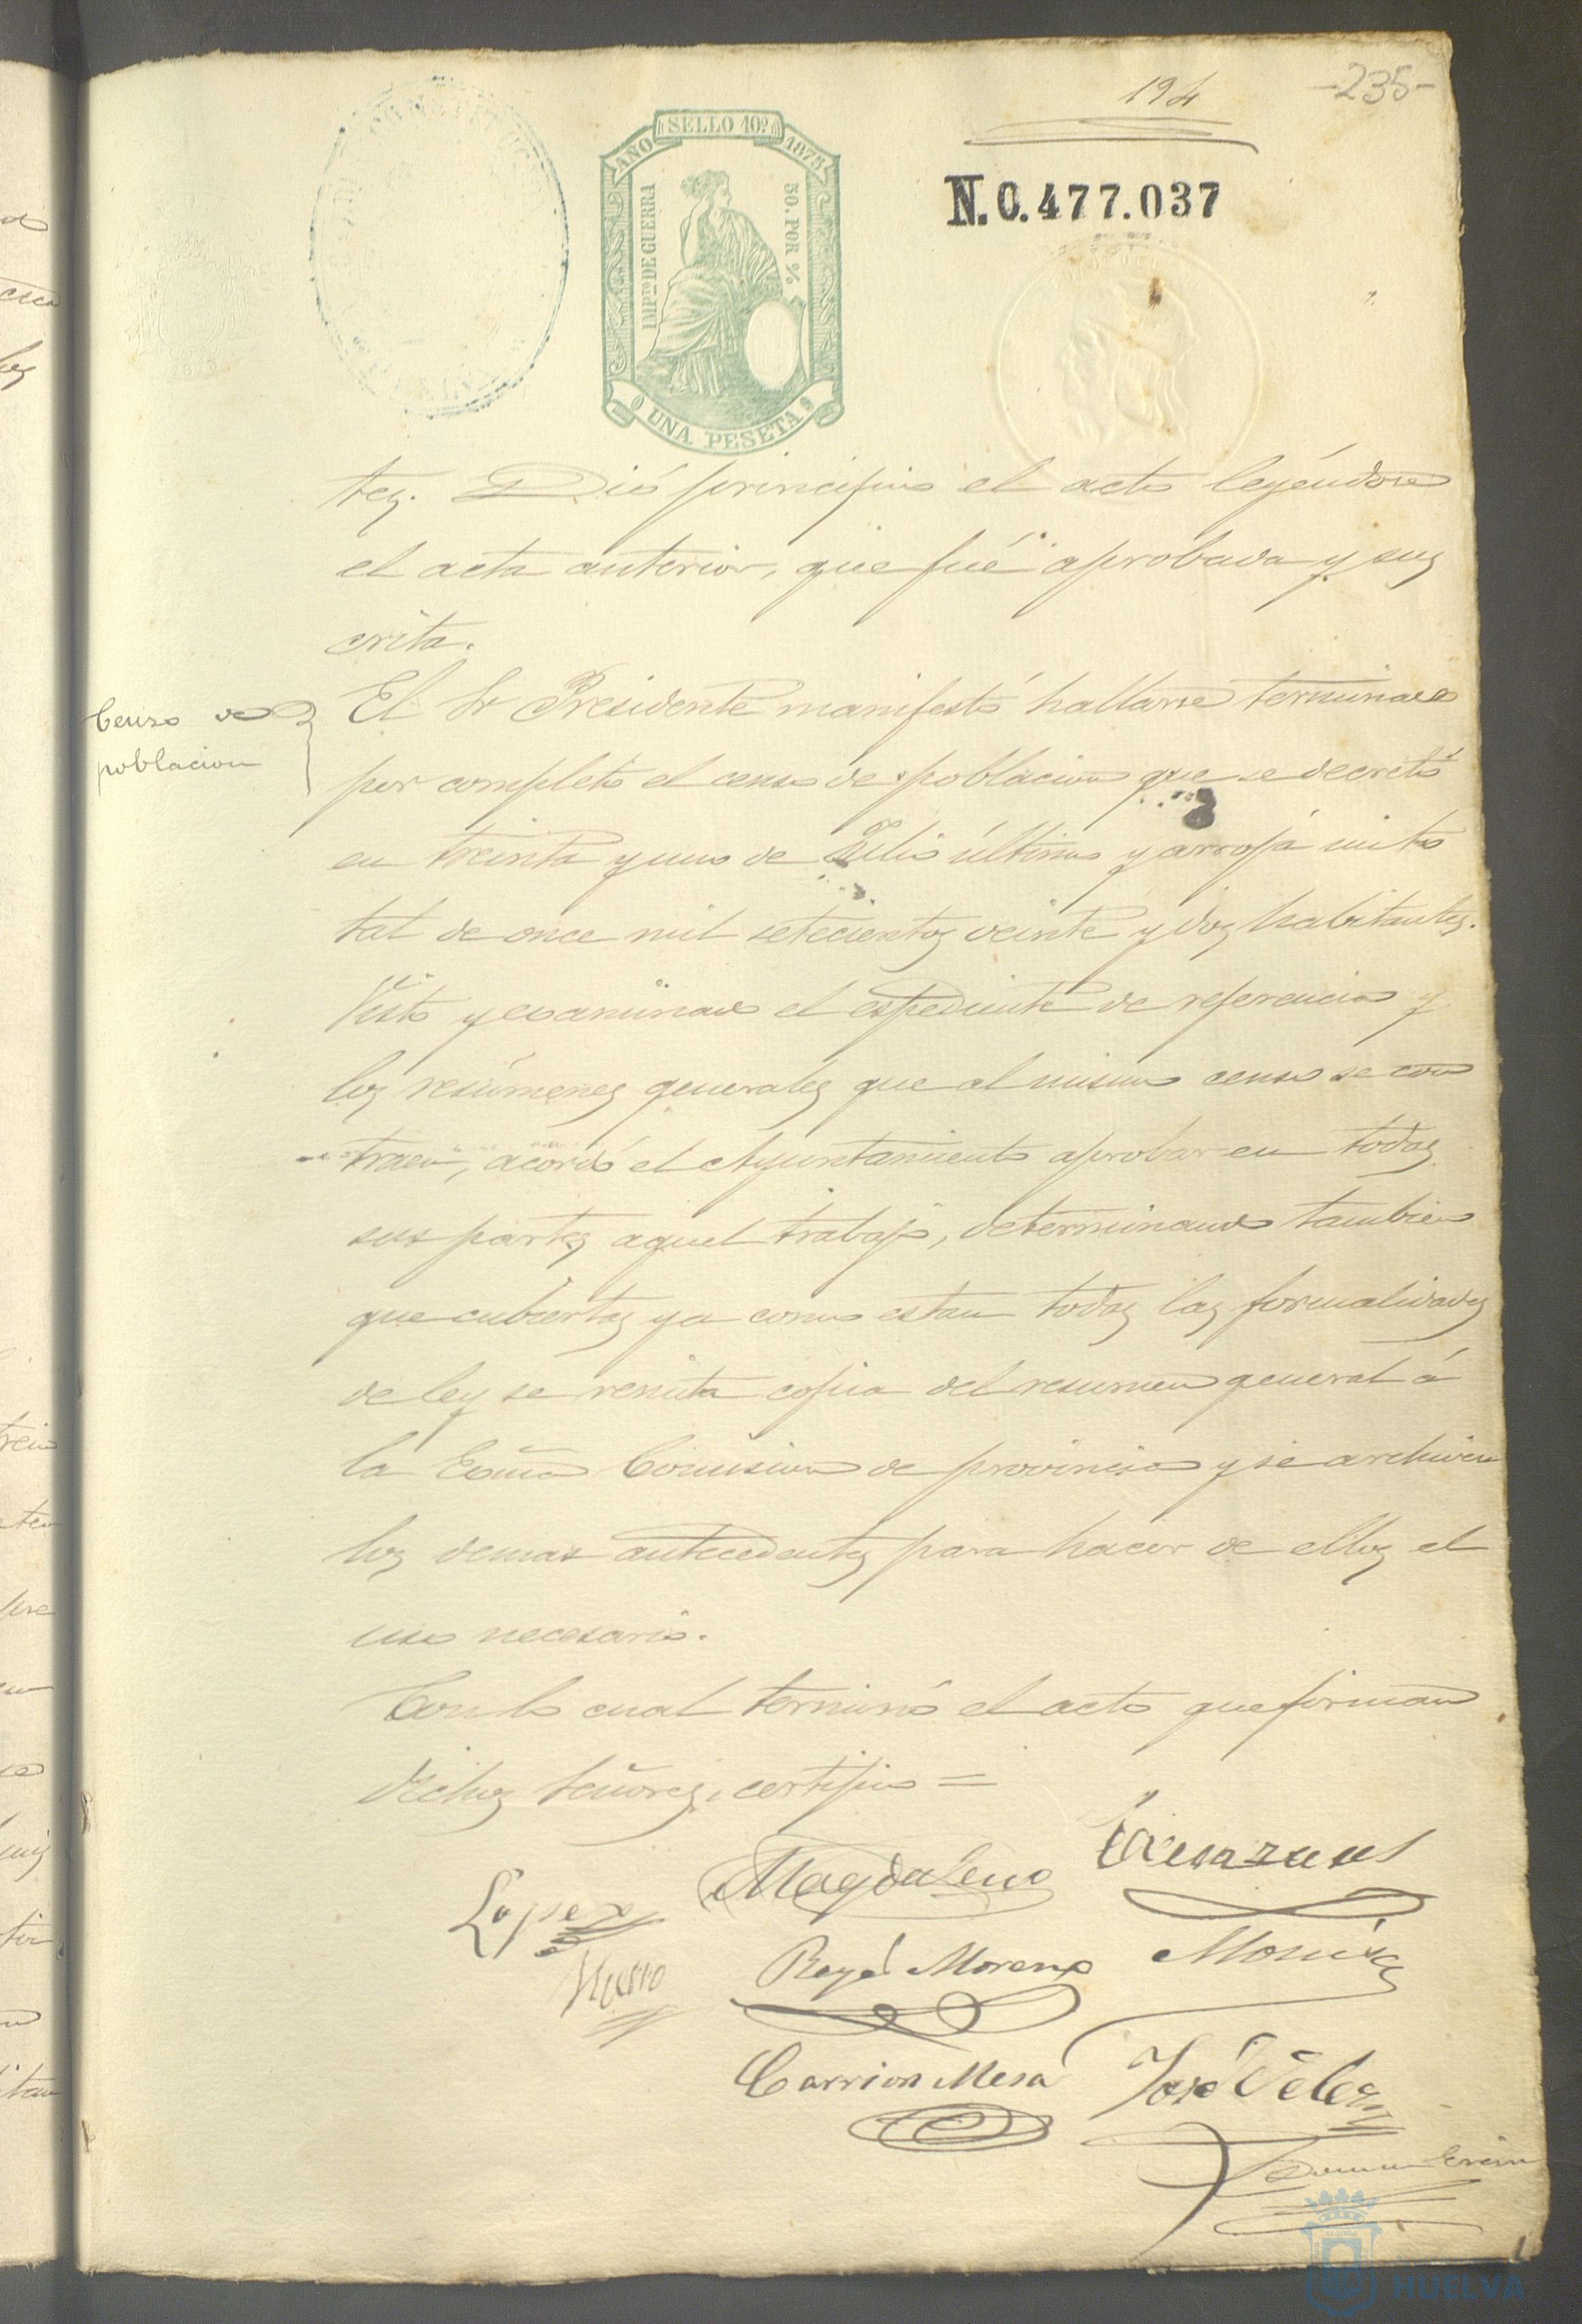 194
-235-
SELLO 10º
AÑO 1875
IMPTO DE GUERRA
50 POR %
UNA PESETA
N.0.477.037
tes. Dió principio el acto leyéndose
el acta anterior, que fué aprobada y sus
crita.
Censo de
poblacion
El Sr Presidente manifestó hallarse terminado
por completo el censo de poblacion que se decretó
en treinta y uno de Julio último y arroja un to
tal de once mil setecientos veinte y dos habitantes.
Visto y examinado el espediente de referencia y
los resúmenes generales que al mismo censo se con
traen, acordó el Ayuntamiento aprobar en todas
sus partes aquel trabajo, determinando tambien
que cubiertas ya como estan todas las formalidades
de ley se remita copia del resumen general á
la Exma Comision de provincia y se archiven
los demas antecedentes para hacer de ellos el
uso necesario.
Con lo cual terminó el acto que firman
dichos Señores, certifico =
Lopez
Magdaleno
Moreno
Carrion Mesa
José
HUELVA